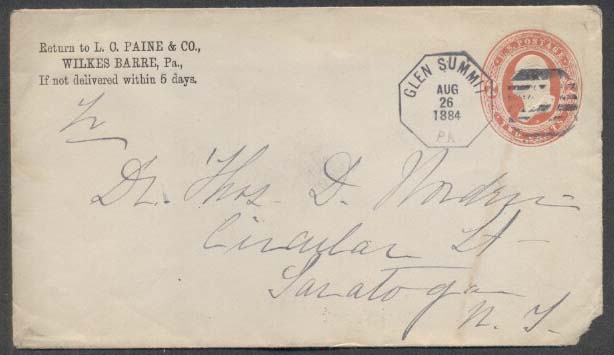 Return to L. C. PAINE & CO.,
WILKES BARRE, Pa.,
If not delivered within 5 days.
GLEN SUMMIT
AUG
26
1884
PA
U.S. POSTAGE
Dr. Thos. D.
Circular St
Saratoga
N. Y.